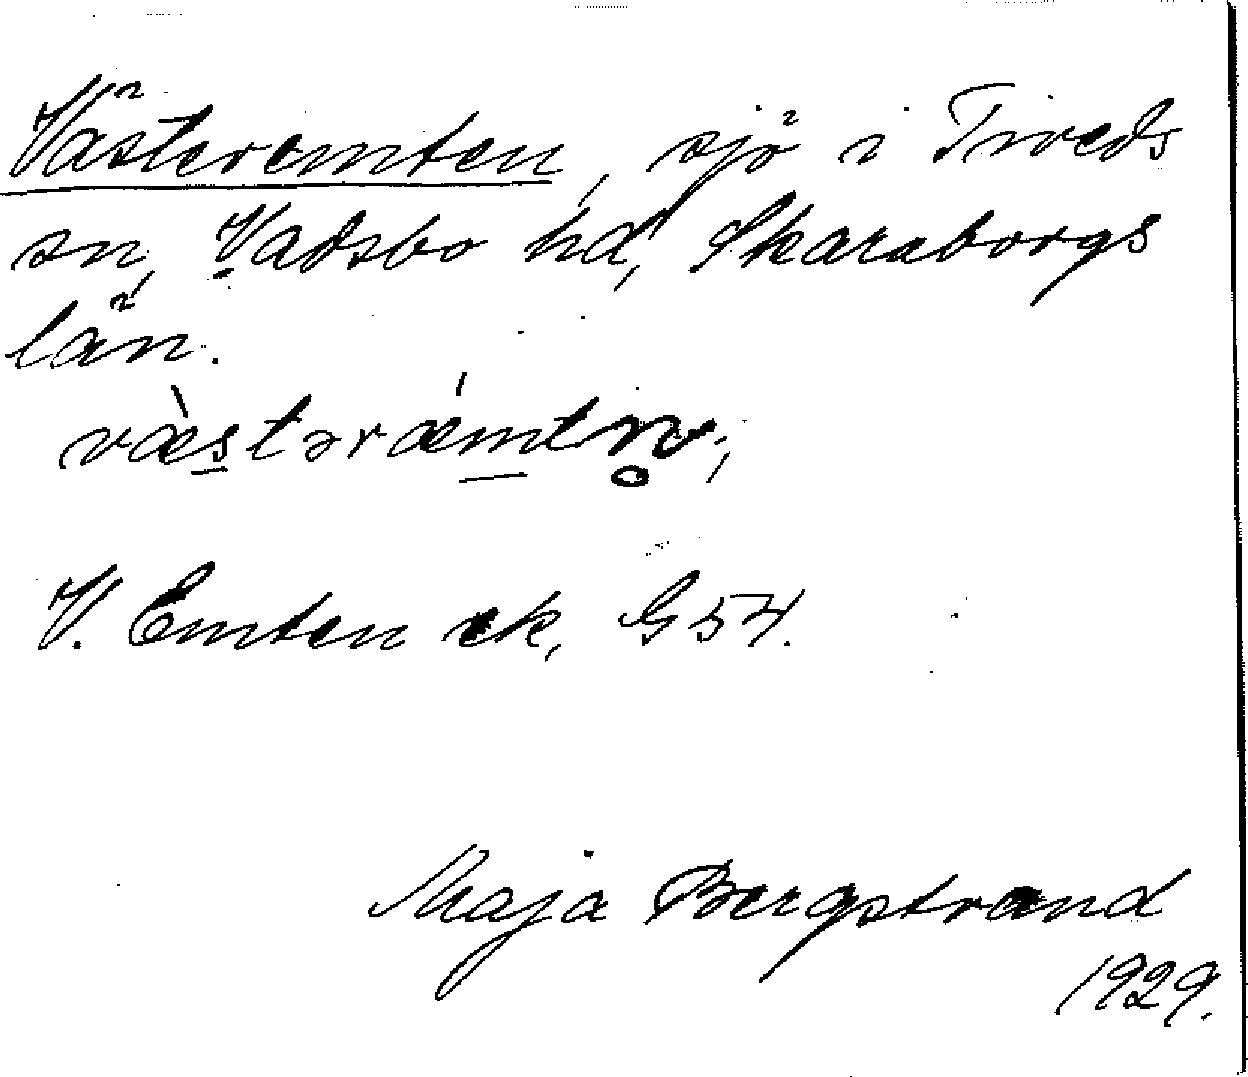 Västeremten, sjö i Tiveds
sn, Vadsbo hd, Skaraborgs
län.
væ̀s̲tərǽm̲tn̥;
V. Emten ek, G 54.
Maja Bergstrand
1929.